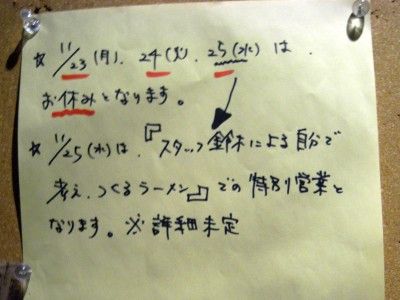 ☆ 11/23(月)、24(火)、25(水)は、
お休みとなります。
☆ 11/25(水)は、『スタッフ鈴木による自分で
考え、つくるラーメン』での特別営業と
なります。※詳細未定